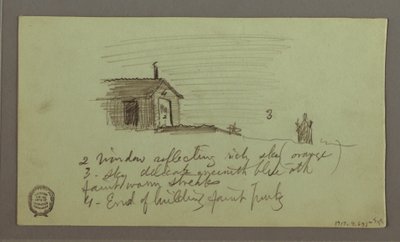 3
2 Window reflecting rich sky (orange)
3 - Sky delicate greenish blue with
faint warm streaks
4 - End of building faint
1917-4-